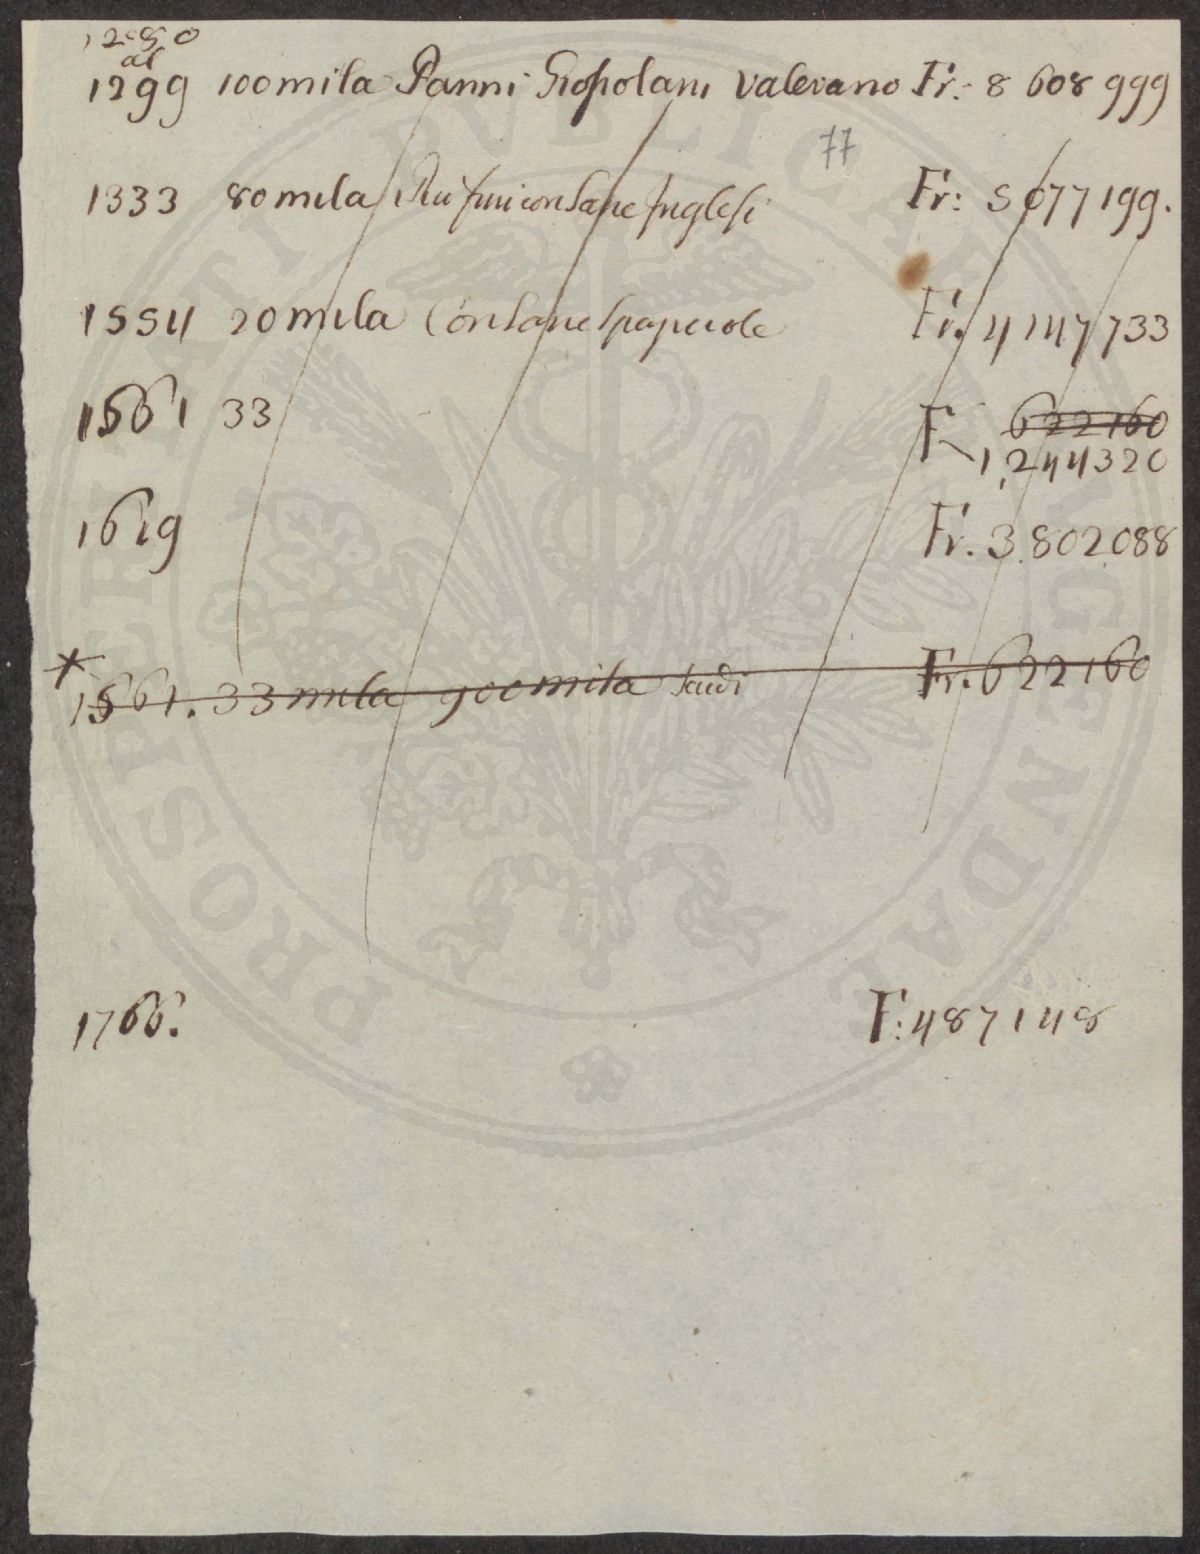 1280
al
1299 100 mila Panni Grossolani valevano Fr: 8 608 999
77
1333 80 mila Piu fini con Lane Inglesi Fr: 5 677 199.
1554 20 mila Con Lane Spagniole Fr. 4 147 733
1561 33 F 622160
1,244320
1619 Fr. 3.802088
1561. 33 mila 900 mila Scudi Fr. 622160
1766. F: 487148
PROSPERITATI PVBLICAE AVGENDAE